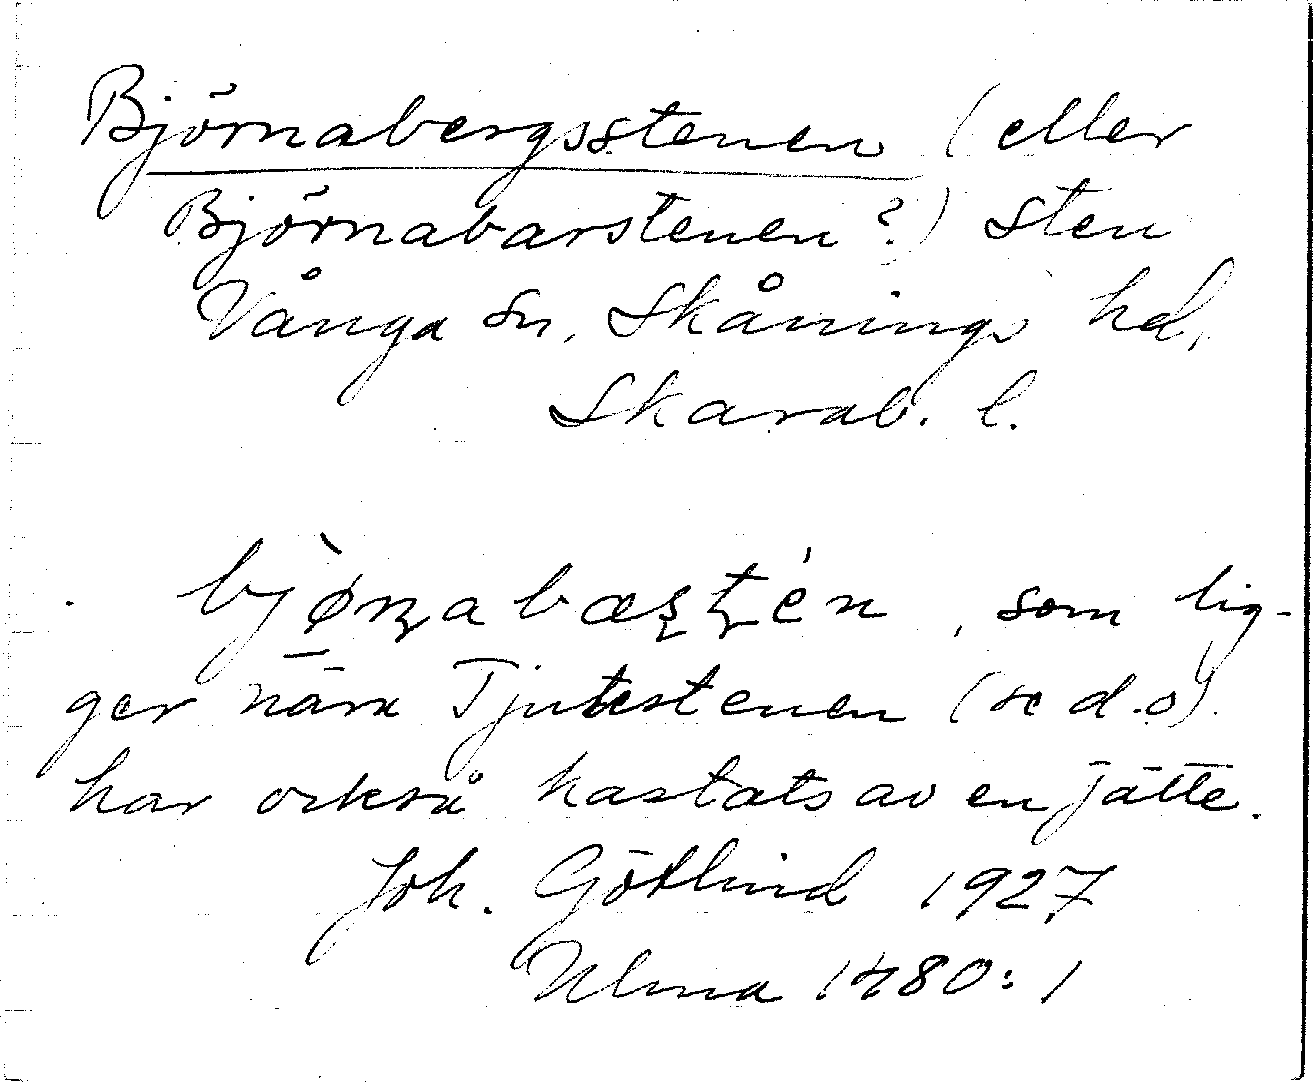 Björnabergsstenen (eller
Björnabarstenen?) Sten
Vånga sn, Skånings hd,
Skarab. l.
bjø̀ɳabæʂʈén, som lig-
ger nära Tjutestenen (se d.o)
har också kastats av en jätte.
Joh. Götlind 1927
Ulma 1480:1